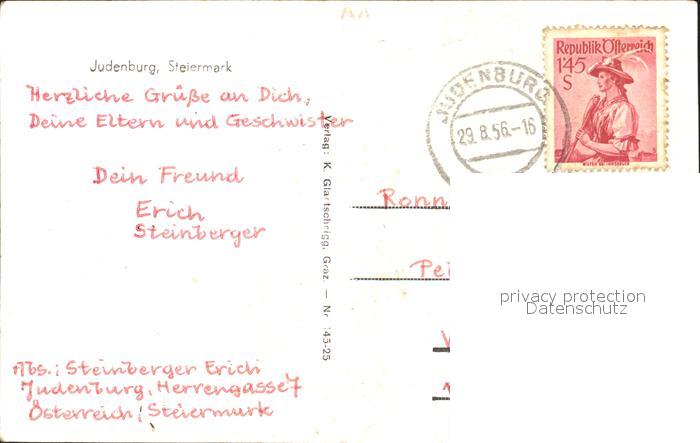 Judenburg, Steiermark
Herzliche Grüße an Dich,
Deine Eltern und Geschwister
Dein Freund
Erich
Steinberger
Abs.: Steinberger Erich
Judenburg, Herrengasse 7
Österreich, Steiermark
Verlag: K. Glantschnigg, Graz. — Nr. 145-25
JUDENBURG
29.8.56.-16
Republik Österreich
1'45
S
Ronn
Pei
privacy protection
Datenschutz